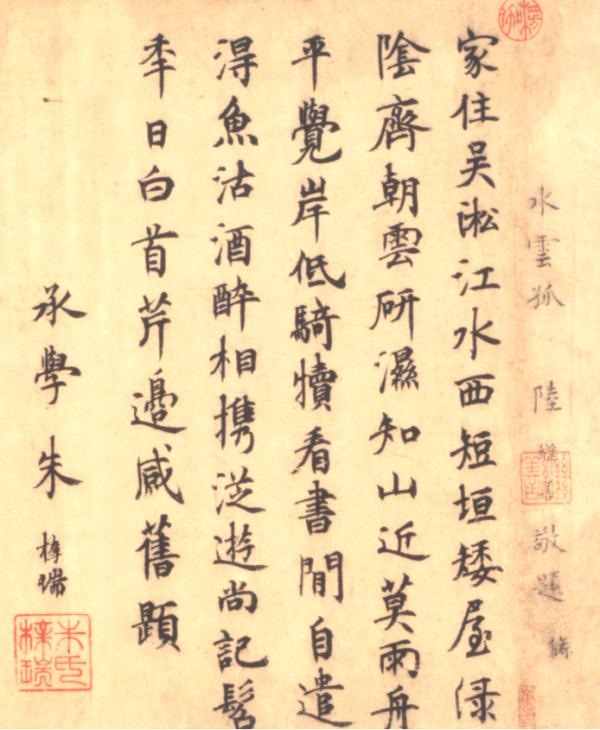 水雲孤 陸繼善敬題
家住吴淞江水西短垣矮屋渌
陰齊朝雲研濕知山近莫雨舟
平覺岸低騎犢看書閒自遣
淂魚沽酒醉相携從遊尚記髫
秊日白首芹邊感舊題
承學朱